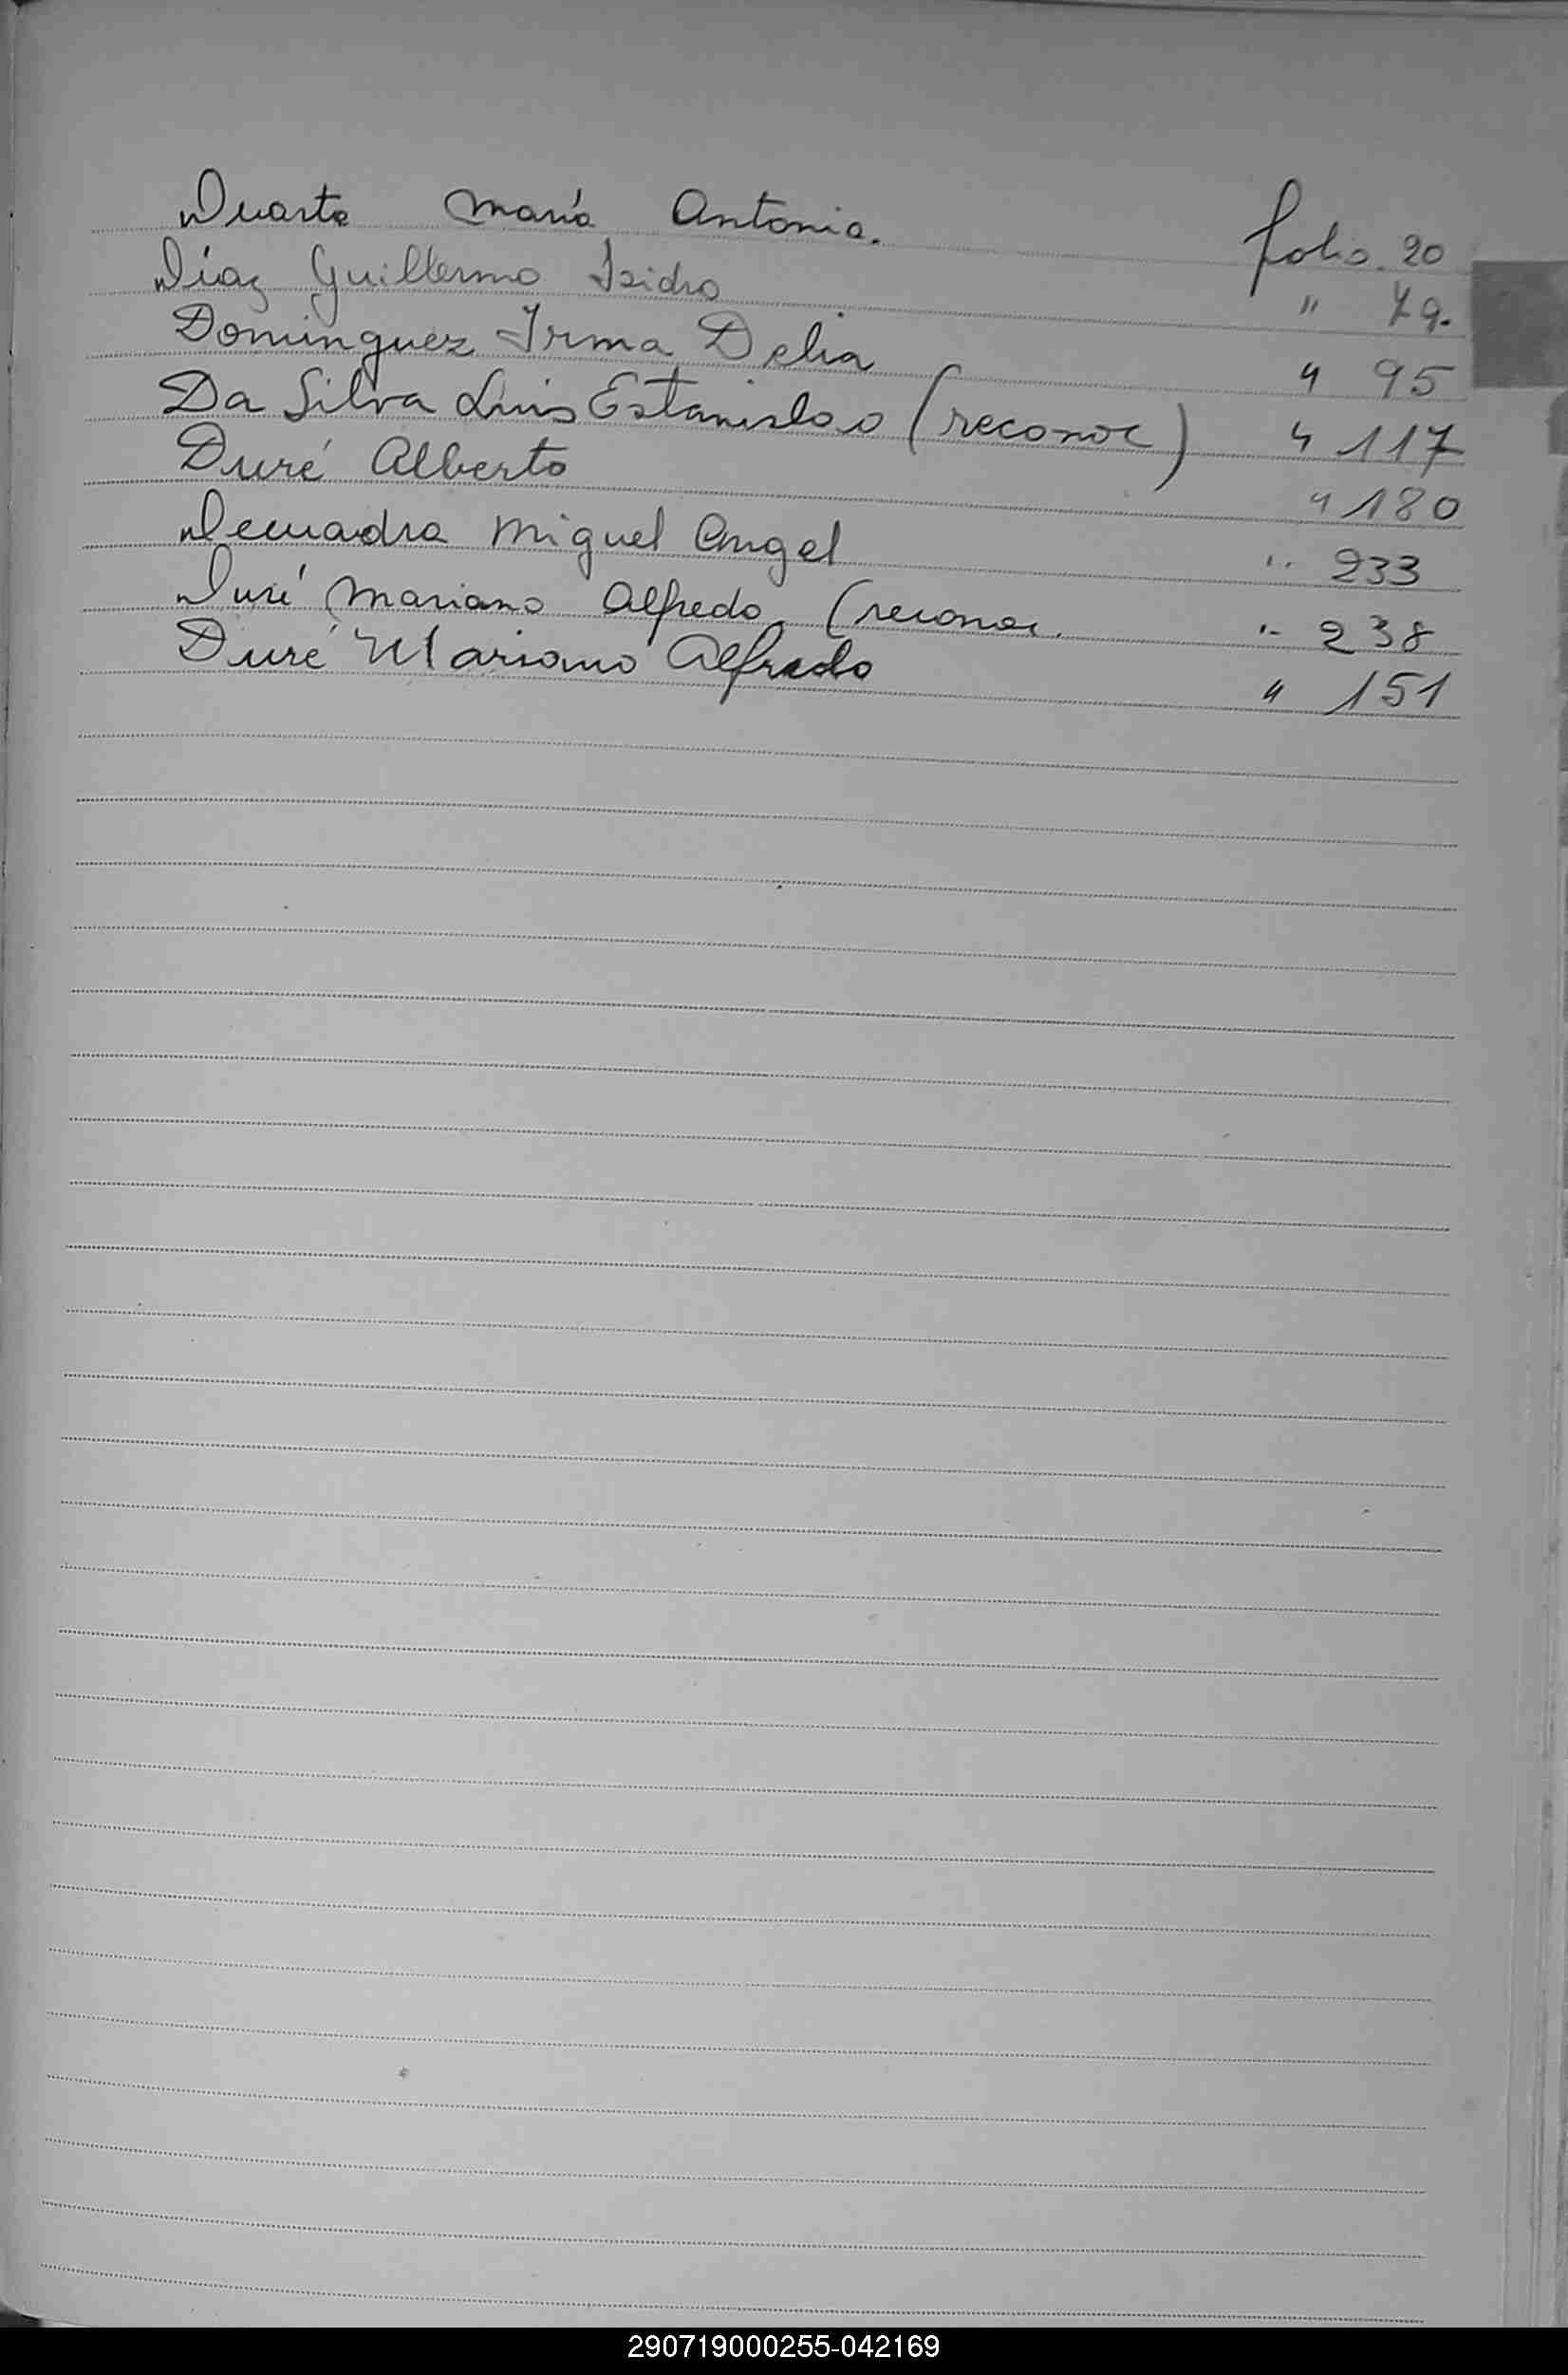 Duarte María Antonia. folio. 20
Díaz Guillermo Isidro " 79.
Dominguez Irma Delia " 95
Da Silva Luis Estanislao (reconoc) " 117
Duré Alberto " 180
Decuadra Miguel Angel " 233
Duré Mariano Alfredo (reconoc. " 238
Duré Mariano Alfredo " 151
290719000255-042169